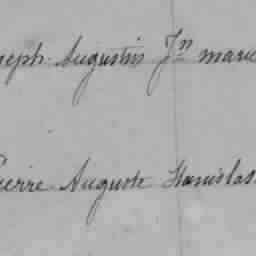 seph Augustin Jn marie
Pierre Auguste Stanislas